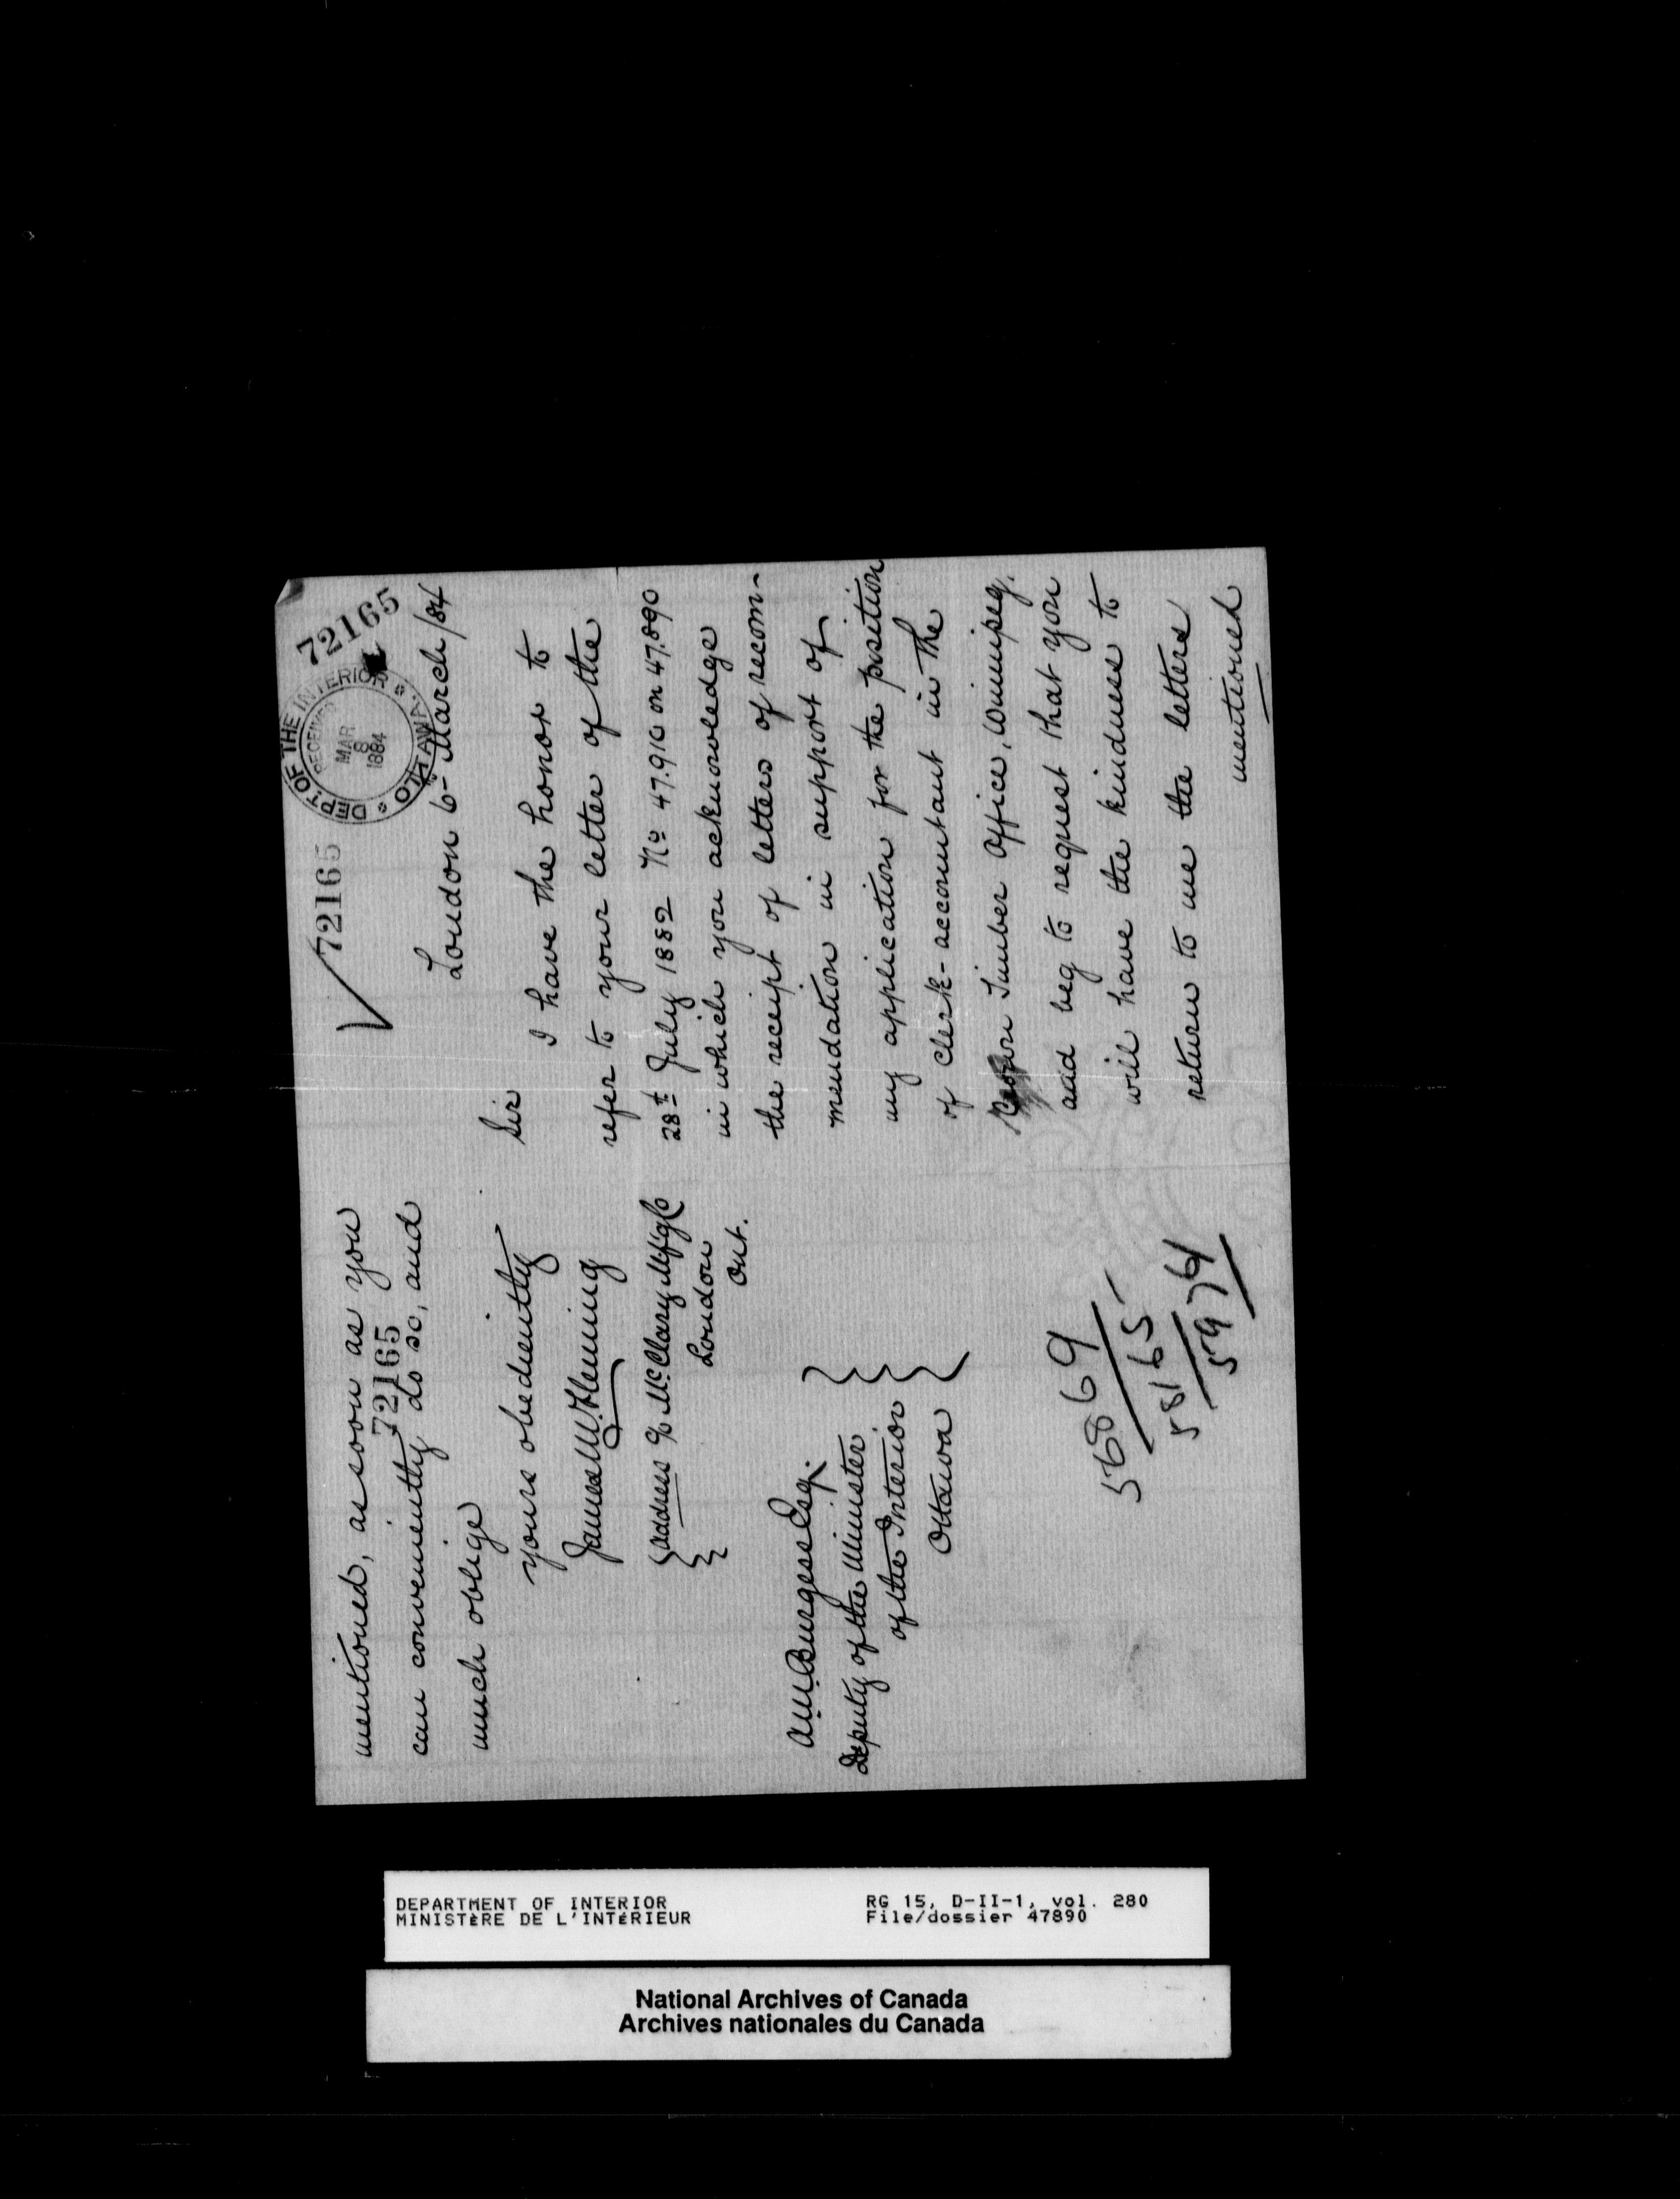 72165
72165
DEPT OF THE INTERIOR
OTTAWA
RECEIVED
MAR
8
1884
London 6 - March /84
Sir
I have the honor to
refer to your letter of the
28th July 1882 No 47.910 on 47.890
in which you acknowledge
the receipt of letters of recom-
mendation in support of
my application for the position
of clerk-accountant in the
Crown Timber Office, Winnipeg.
and beg to request that you
will have the kindness to
return to me the letters
mentioned
mentioned, as soon as you
72165
can conveniently do so, and
much oblige
yours obediently
James W. Fleming
Address c/o McClary Mf'g Co
London
Ont.
A.M. Burgess Esq.
Deputy of the Minister
of the Interior
Ottawa
56869
58165
59764
DEPARTMENT OF INTERIOR
MINISTÈRE DE L'INTÉRIEUR
RG 15, D-II-1, vol. 280
File/dossier 47890
National Archives of Canada
Archives nationales du Canada